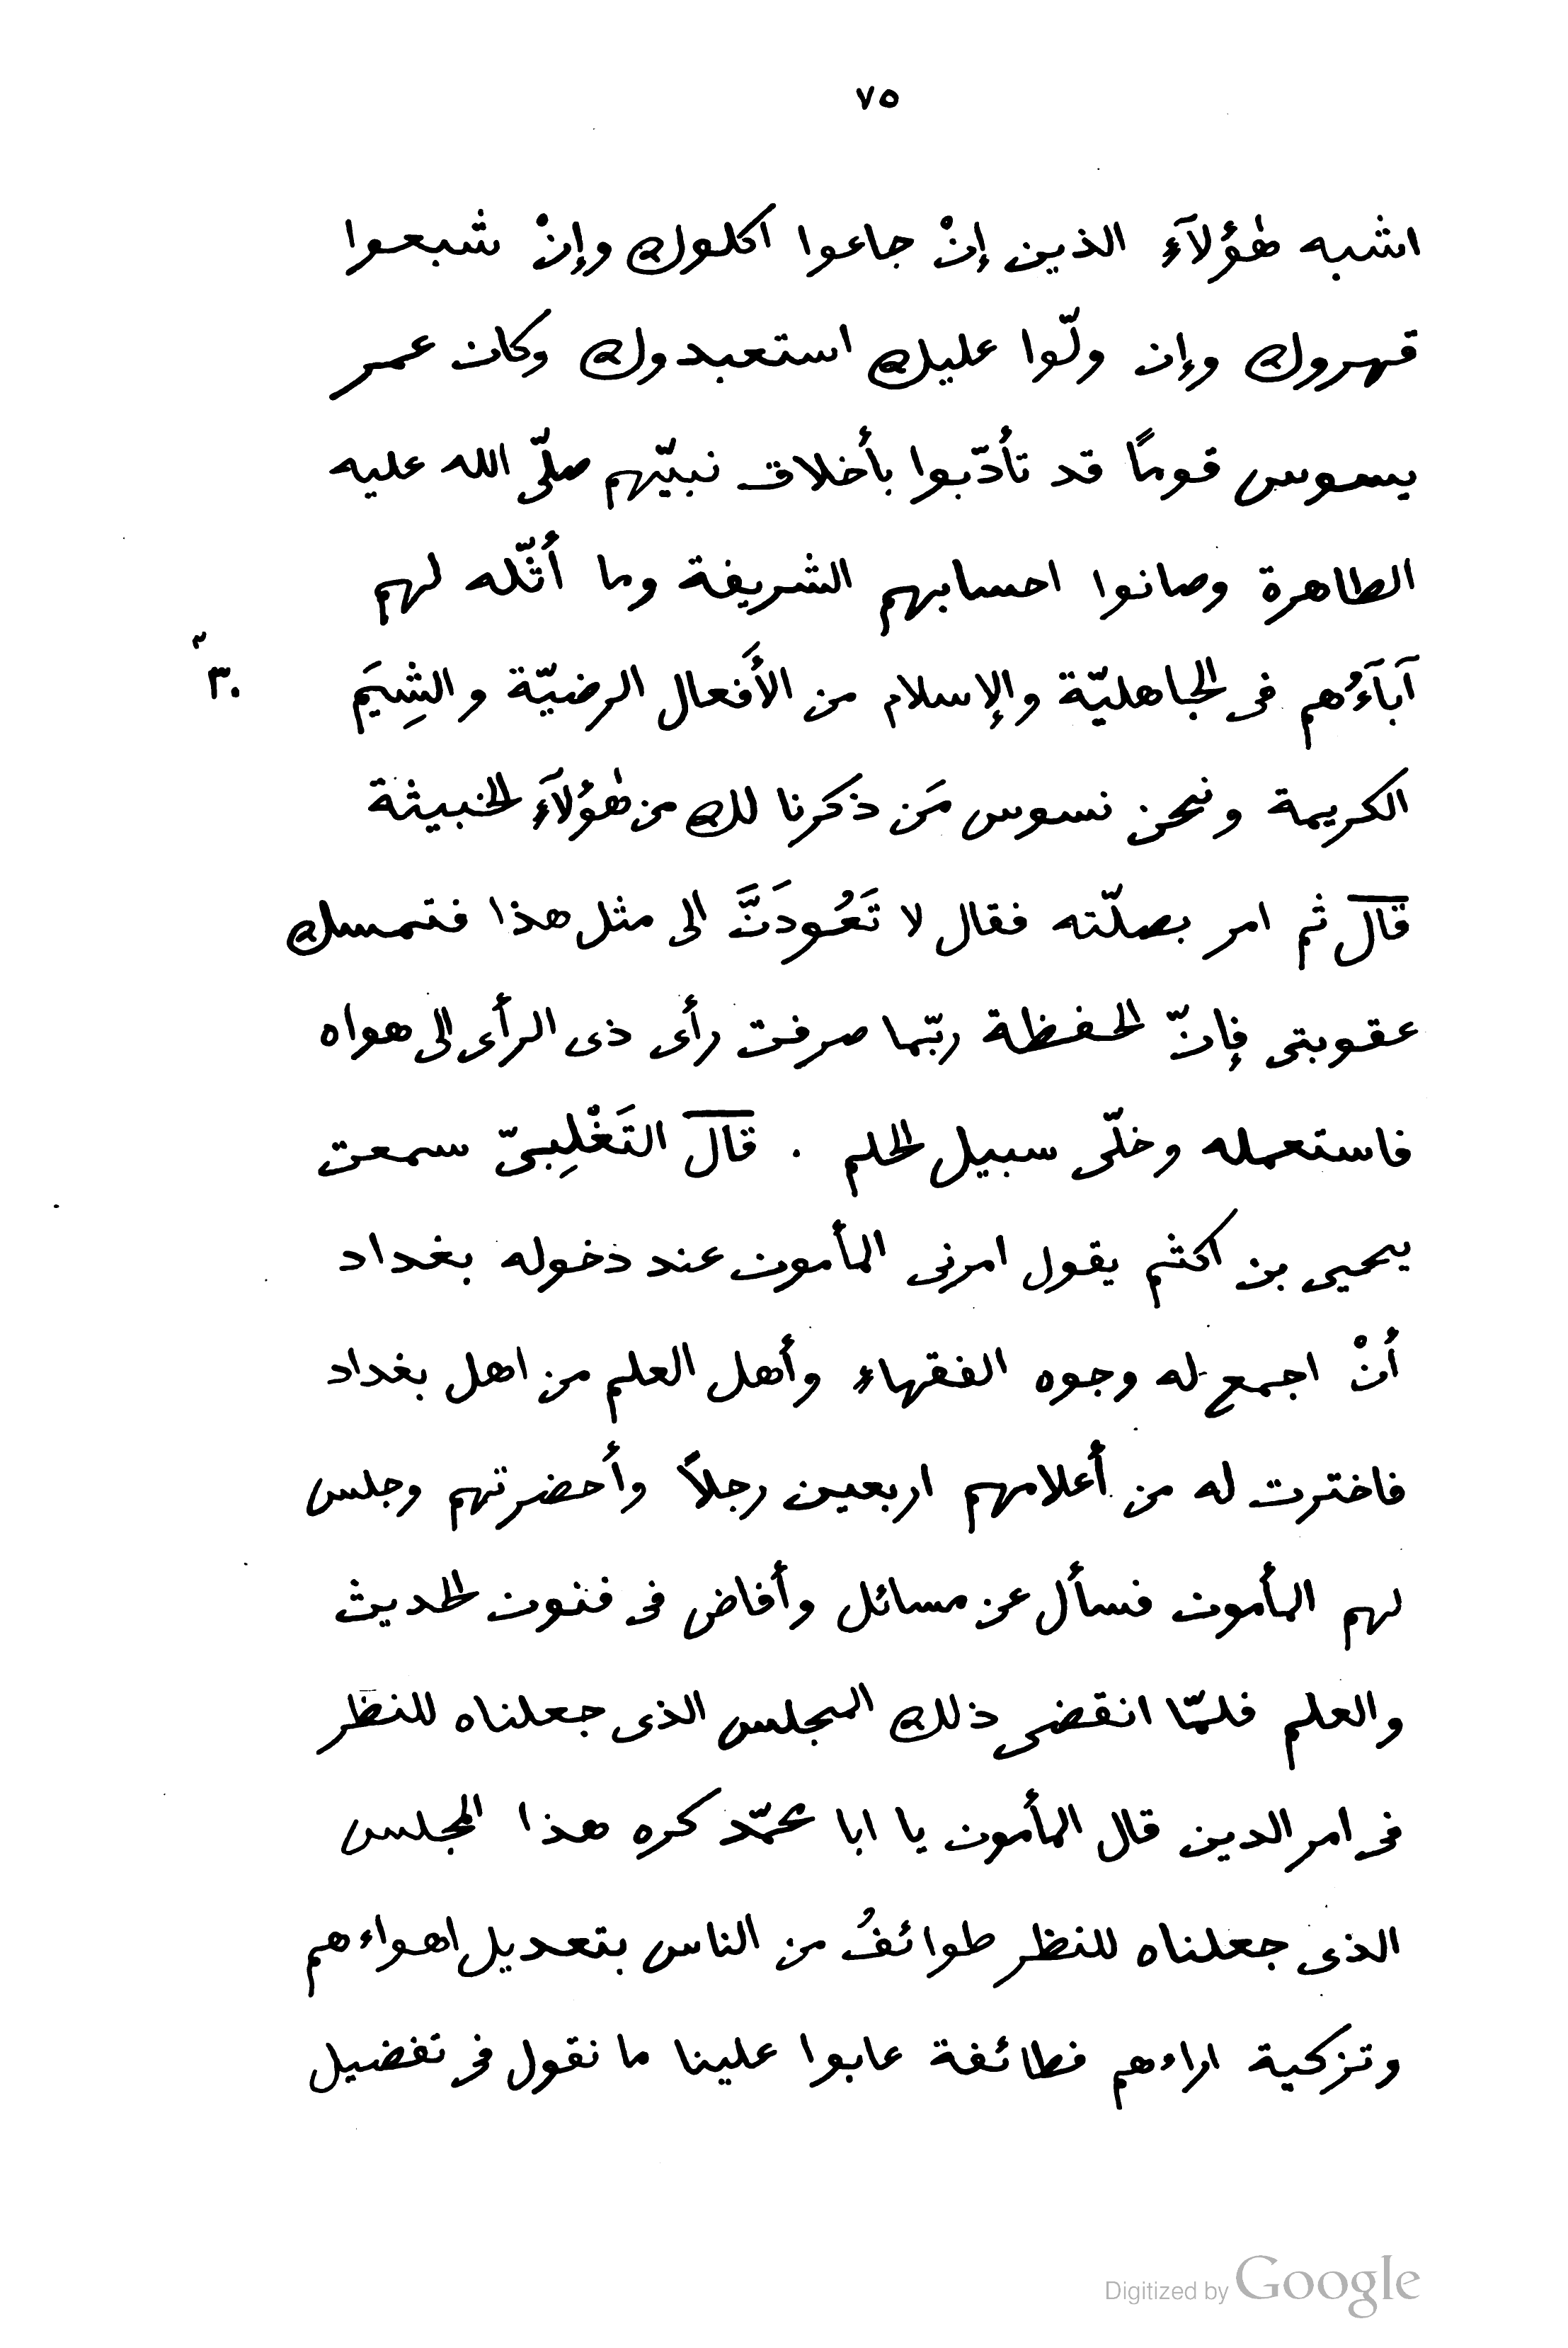 ٧٥
اشبه هٰؤلآءِ الذين إنْ جاعوا اكلوك وإنْ شبعوا
قهروك وإن ولّوا عليك استعبدوك وكان عمر
يسوس قومًا قد تأدّبوا بأخلاق نبيّهم صلّى الله عليه
الطاهرة وصانوا احسابهم الشريفة وما أثّله لهم
آبآءُهم فى الجاهليّة والإسلام من الأَفعال الرضيّة والشِيَم
٣٠
الكريمة ونحن نسوس مَن ذكرنا لك من هٰؤلآءِ الخبيثة
قال ثم امر بصلّته فقال لا تَعُودَنَّ الى مثل هذا فتمسك
عقوبتى فإنّ الحفظة ربّما صرفت رأى ذى الرأى الى هواه
فاستعمله وخلّى سبيل الحلم . قال التَغْلِبىّ سمعت
يحيى بن اكثم يقول امرنى المأمون عند دخوله بغداد
أنْ اجمع له وجوه الفقهاء وأهل العلم من اهل بغداد
فاخترت له من أعلامهم اربعين رجلاً وأحضرتهم وجلس
لهم المأمون فسأل عن مسائل وأفاض فى فنون الحديث
والعلم فلمّا انقضى ذلك المجلس الذى جعلناه للنظر
فى امر الدين قال المأمون يا ابا محمّد كره هذا المجلس
الذى جعلناه للنظر طوائفُ من الناس بتعديل اهواءهم
وتزكية اراءهم فطائفة عابوا علينا ما نقول فى تفضيل
Digitized by Google